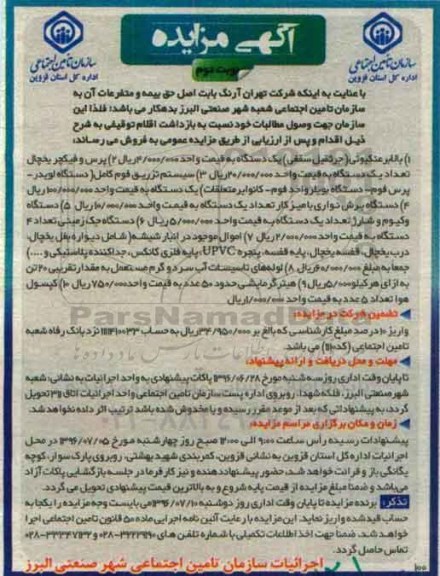 آگهی مزایده
نوبت دوم
سازمان تأمین اجتماعی
اداره کل استان قزوین
سازمان تأمین اجتماعی
اداره کل استان قزوین
با عنایت به اینکه شرکت تهران آرنگ بابت اصل حق بیمه و متفرعات آن به
سازمان تامین اجتماعی شعبه شهر صنعتی البرز بدهکار می باشد؛ فلذا این
سازمان جهت وصول مطالبات خود نسبت به بازداشت اقلام توقیفی به شرح
ذیل اقدام و پس از ارزیابی از طریق مزایده عمومی به فروش می رساند:
۱) بالابر منگیوتی (جرثقیل سقفی) یک دستگاه به قیمت واحد ریال ۲) پرس و فیکچر یخچال
تعداد یک دستگاه به قیمت واحد ریال ۳) سیستم تزریق فوم کامل (دستگاه لویدر-
پرس فوم- دستگاه بویلر واحد فوم- کانوایر متعلقات) یک دستگاه به قیمت واحد ریال
۴) دستگاه برش نواری با میز کار تعداد یک دستگاه به قیمت واحد ریال ۵) دستگاه
وکیوم و شارژ تعداد یک دستگاه به قیمت واحد ریال ۶) دستگاه جک زمینی تعداد ۴
دستگاه به قیمت واحد ریال ۷) اموال موجود در انبار شیشه (شامل دیواره بغل یخچال،
درب یخچال، قفسه یخچال، پایه قفسه، پنجره UPVC، پایه فلزی کانکس، جداکننده پلاستیکی و ....)
جمعا به مبلغ ریال ۸) لوله های تاسیسات آب سرد و گرم مستعمل به مقدار تقریبی ۲۰ تن
به ازای هر کیلو ریال ۹) هیتر گرمایشی حدود ۵۰ عدد به قیمت واحد ریال ۱۰) کپسول
هوا تعداد ۵ عدد به قیمت واحد ریال
تضمین شرکت در مزایده:
واریز ۱۰ درصد مبلغ کارشناسی که بالغ بر ریال به حساب نزد بانک رفاه شعبه
تامین اجتماعی می باشد.
مهلت و محل دریافت و ارائه پیشنهاد:
تا پایان وقت اداری روز سه شنبه مورخ ۱۳۹۶/۰۶/۲۸ پاکات پیشنهادی به واحد اجرائیات به نشانی: شعبه
شهر صنعتی البرز، فلکه شهدا، روبروی اداره پست سازمان تامین اجتماعی واحد اجرائیات اتاق تحویل
گردد، به پیشنهاداتی که بعد از موعد مقرر رسیده و یا مخدوش شده باشد ترتیب اثر داده نخواهد شد.
زمان و مکان برگزاری مراسم مزایده:
پیشنهادات رسیده رأس ساعت ۹:۰۰ الی ۱۲:۰۰ صبح روز چهارشنبه مورخ ۱۳۹۶/۰۷/۰۵ در محل
اجرائیات اداره کل استان قزوین به نشانی قزوین، کمربندی شهید بهشتی، روبروی پارک سوار، کوچه
یگانگی باز و قرائت خواهد شد، حضور پیشنهاد دهنده و نیز کارفرما در جلسه بازگشایی پاکات آزاد
می باشد و ضمنا مبلغ مزایده از قیمت پایه شروع و به بالاترین قیمت پیشنهادی تحویل می گردد.
تذکر: برنده مزایده تا پایان وقت اداری روز دوشنبه ۱۳۹۶/۰۷/۱۰ می بایست وجه مزایده را یکجا به
حساب قید شده واریز نماید. این مزایده با رعایت آئین نامه اجرایی ماده ۵۰ قانون تامین اجتماعی اجرا
خواهد شد. ضمنا جهت اخذ اطلاعات تکمیلی با شماره تلفن های ۰۲۸-۳۲۲۲۹۱۹۰ و ۰۲۸-۳۳۲۴۷۱۳۲
تماس حاصل گردد.
اجرائیات سازمان تامین اجتماعی شهر صنعتی البرز
ParsNamadData